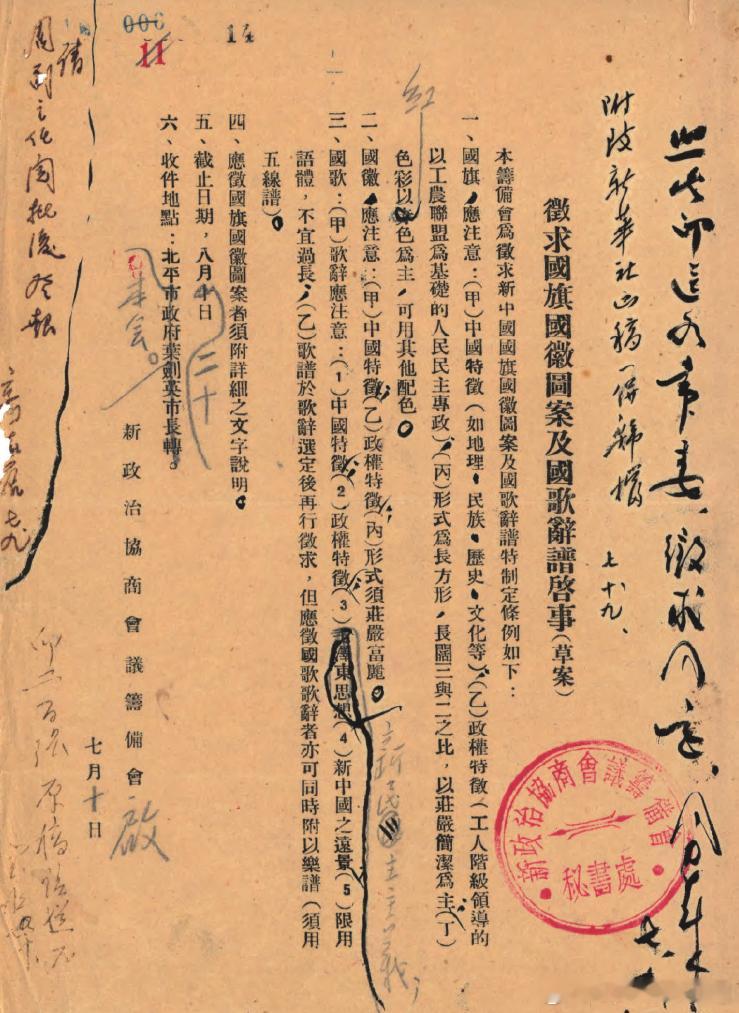 附致新華社函稿一併歸檔
七、十九、
徵求國旗國徽圖案及國歌辭譜啓事(草案)
本籌備會爲徵求新中國國旗國徽圖案及國歌辭譜特制定條例如下:
一、國旗,應注意:(甲)中國特徵(如地理、民族、歷史、文化等),(乙)政權特徵(工人階級領導的
以工農聯盟爲基礎的人民民主專政),(丙)形式爲長方形,長闊三與二之比,以莊嚴簡潔爲主,(丁)
色彩以紅色爲主,可用其他配色。
二、國徽,應注意:(甲)中國特徵(乙)政權特徵(丙)形式須莊嚴富麗。
三、國歌:(甲)歌辭應注意:(1)中國特徵(2)政權特徵(3)毛澤東思想(4)新中國之遠景(5)限用
新民主主義;
語體,不宜過長;(乙)歌譜於歌辭選定後再行徵求,但應徵國歌歌辭者亦可同時附以樂譜(須用
五線譜)。
四、應徵國旗國徽圖案者須附詳細之文字說明。
五、截止日期,八月十日
二十
六、收件地點:北平市政府葉劍英市長轉。
本会。
新政治協商會議籌備會 啟
七月十日
新政治協商會議籌備會
秘書處
請
周副主任閱批後登報
七、九
006
11
14